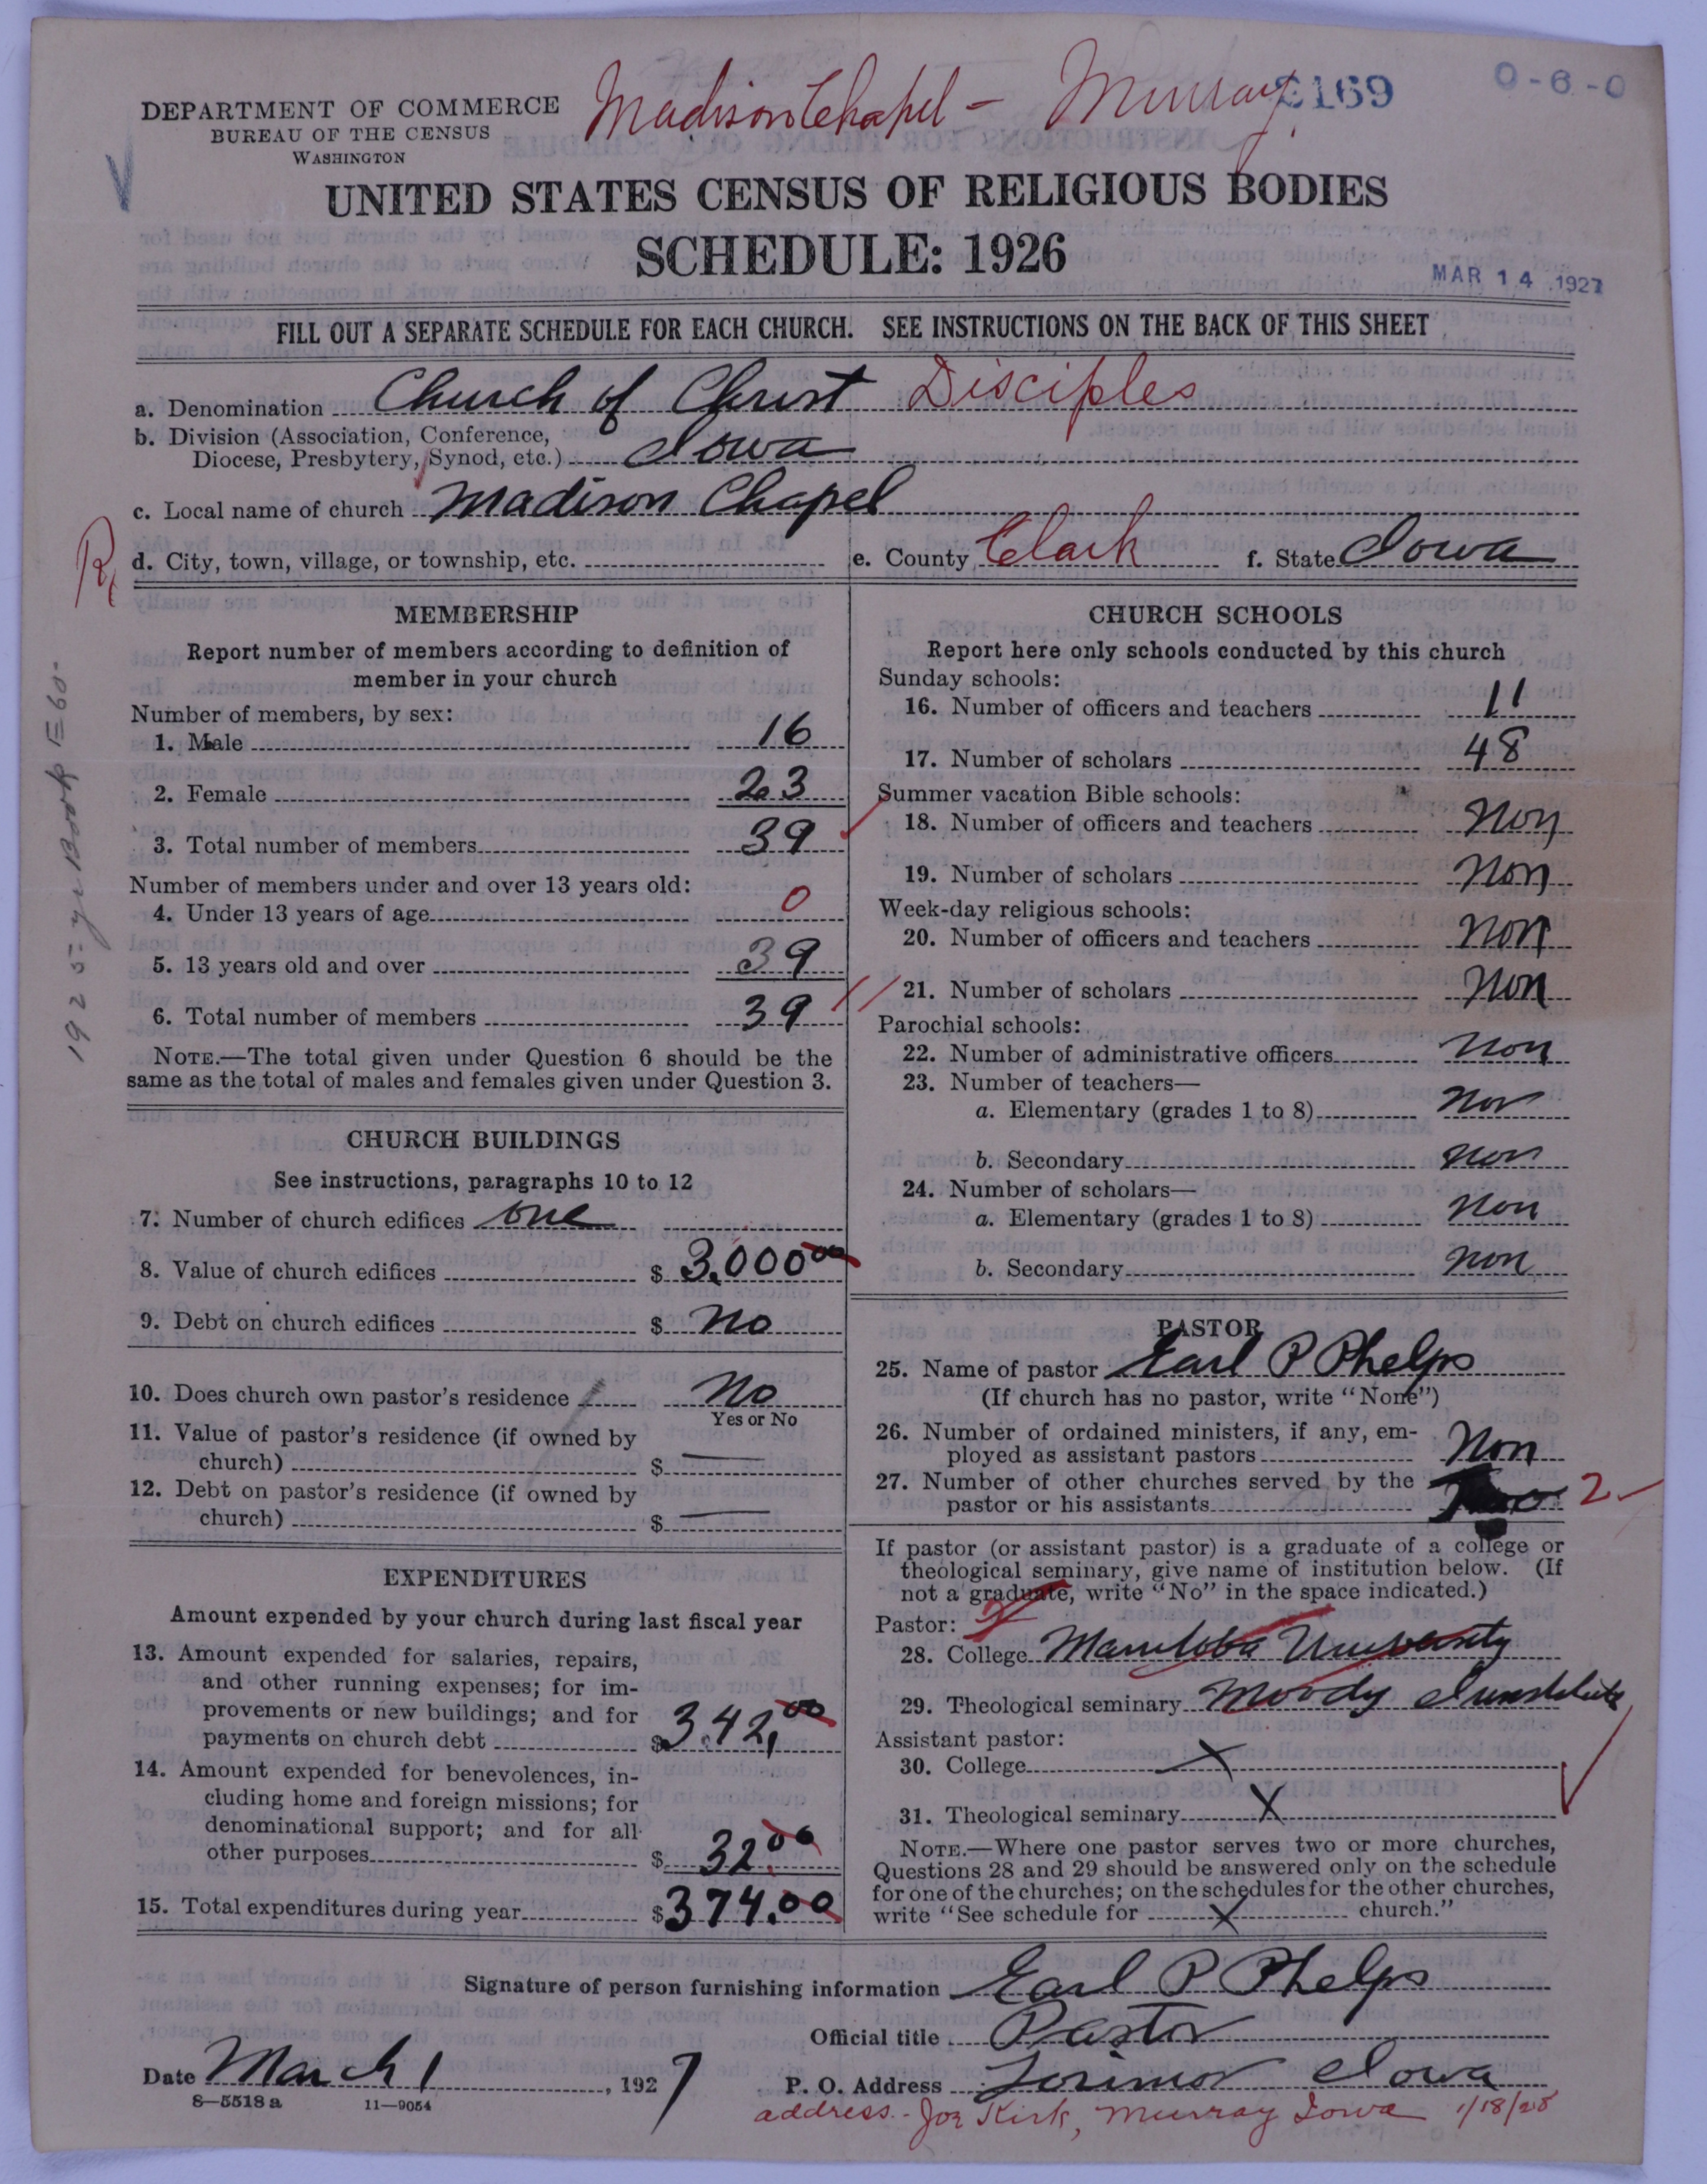 DEPARTMENT OF COMMERCE
BUREAU OF THE CENSUS
WASHINGTON
Madison Chapel - Murray
2169
0-6-0
UNITED STATES CENSUS OF RELIGIOUS BODIES
SCHEDULE: 1926
MAR 14 1927
FILL OUT A SEPARATE SCHEDULE FOR EACH CHURCH. SEE INSTRUCTIONS ON THE BACK OF THIS SHEET
a. Denomination Church of Christ Disciples
b. Division (Association, Conference,
Diocese, Presbytery, Synod, etc.) Iowa
c. Local name of church Madison Chapel
d. City, town, village, or township, etc.
e. County Clark f. State Iowa
MEMBERSHIP
Report number of members according to definition of
member in your church
Number of members, by sex:
1. Male 16
2. Female 23
3. Total number of members 39
Number of members under and over 13 years old:
4. Under 13 years of age 0
5. 13 years old and over 39
6. Total number of members 39
NOTE.—The total given under Question 6 should be the
same as the total of males and females given under Question 3.
CHURCH BUILDINGS
See instructions, paragraphs 10 to 12
7. Number of church edifices one
8. Value of church edifices $ 3,000 00
9. Debt on church edifices $ no
10. Does church own pastor's residence No
Yes or No
11. Value of pastor's residence (if owned by
church) $ —
12. Debt on pastor's residence (if owned by
church) $ —
EXPENDITURES
Amount expended by your church during last fiscal year
13. Amount expended for salaries, repairs,
and other running expenses; for im-
provements or new buildings; and for
payments on church debt $ 342.00
14. Amount expended for benevolences, in-
cluding home and foreign missions; for
denominational support; and for all
other purposes $ 32.00
15. Total expenditures during year $ 374.00
CHURCH SCHOOLS
Report here only schools conducted by this church
Sunday schools:
16. Number of officers and teachers 11
17. Number of scholars 48
Summer vacation Bible schools:
18. Number of officers and teachers Non
19. Number of scholars Non
Week-day religious schools:
20. Number of officers and teachers Non
21. Number of scholars Non
Parochial schools:
22. Number of administrative officers Non
23. Number of teachers—
a. Elementary (grades 1 to 8) Non
b. Secondary Non
24. Number of scholars—
a. Elementary (grades 1 to 8) Non
b. Secondary Non
PASTOR
25. Name of pastor Earl P Phelps
(If church has no pastor, write "None")
26. Number of ordained ministers, if any, em-
ployed as assistant pastors Non
27. Number of other churches served by the
pastor or his assistants 2
If pastor (or assistant pastor) is a graduate of a college or
theological seminary, give name of institution below. (If
not a graduate, write "No" in the space indicated.)
Pastor:
28. College Manitoba University
29. Theological seminary Moody
Assistant pastor:
30. College X
31. Theological seminary X
NOTE.—Where one pastor serves two or more churches,
Questions 28 and 29 should be answered only on the schedule
for one of the churches; on the schedules for the other churches,
write "See schedule for X church."
Signature of person furnishing information Earl P Phelps
Official title Pastor
Date March 1, 1927
P. O. Address Lorimor Iowa
8—5518a 11—9054
address - Joe Kirk, Murray Iowa 1/18/28